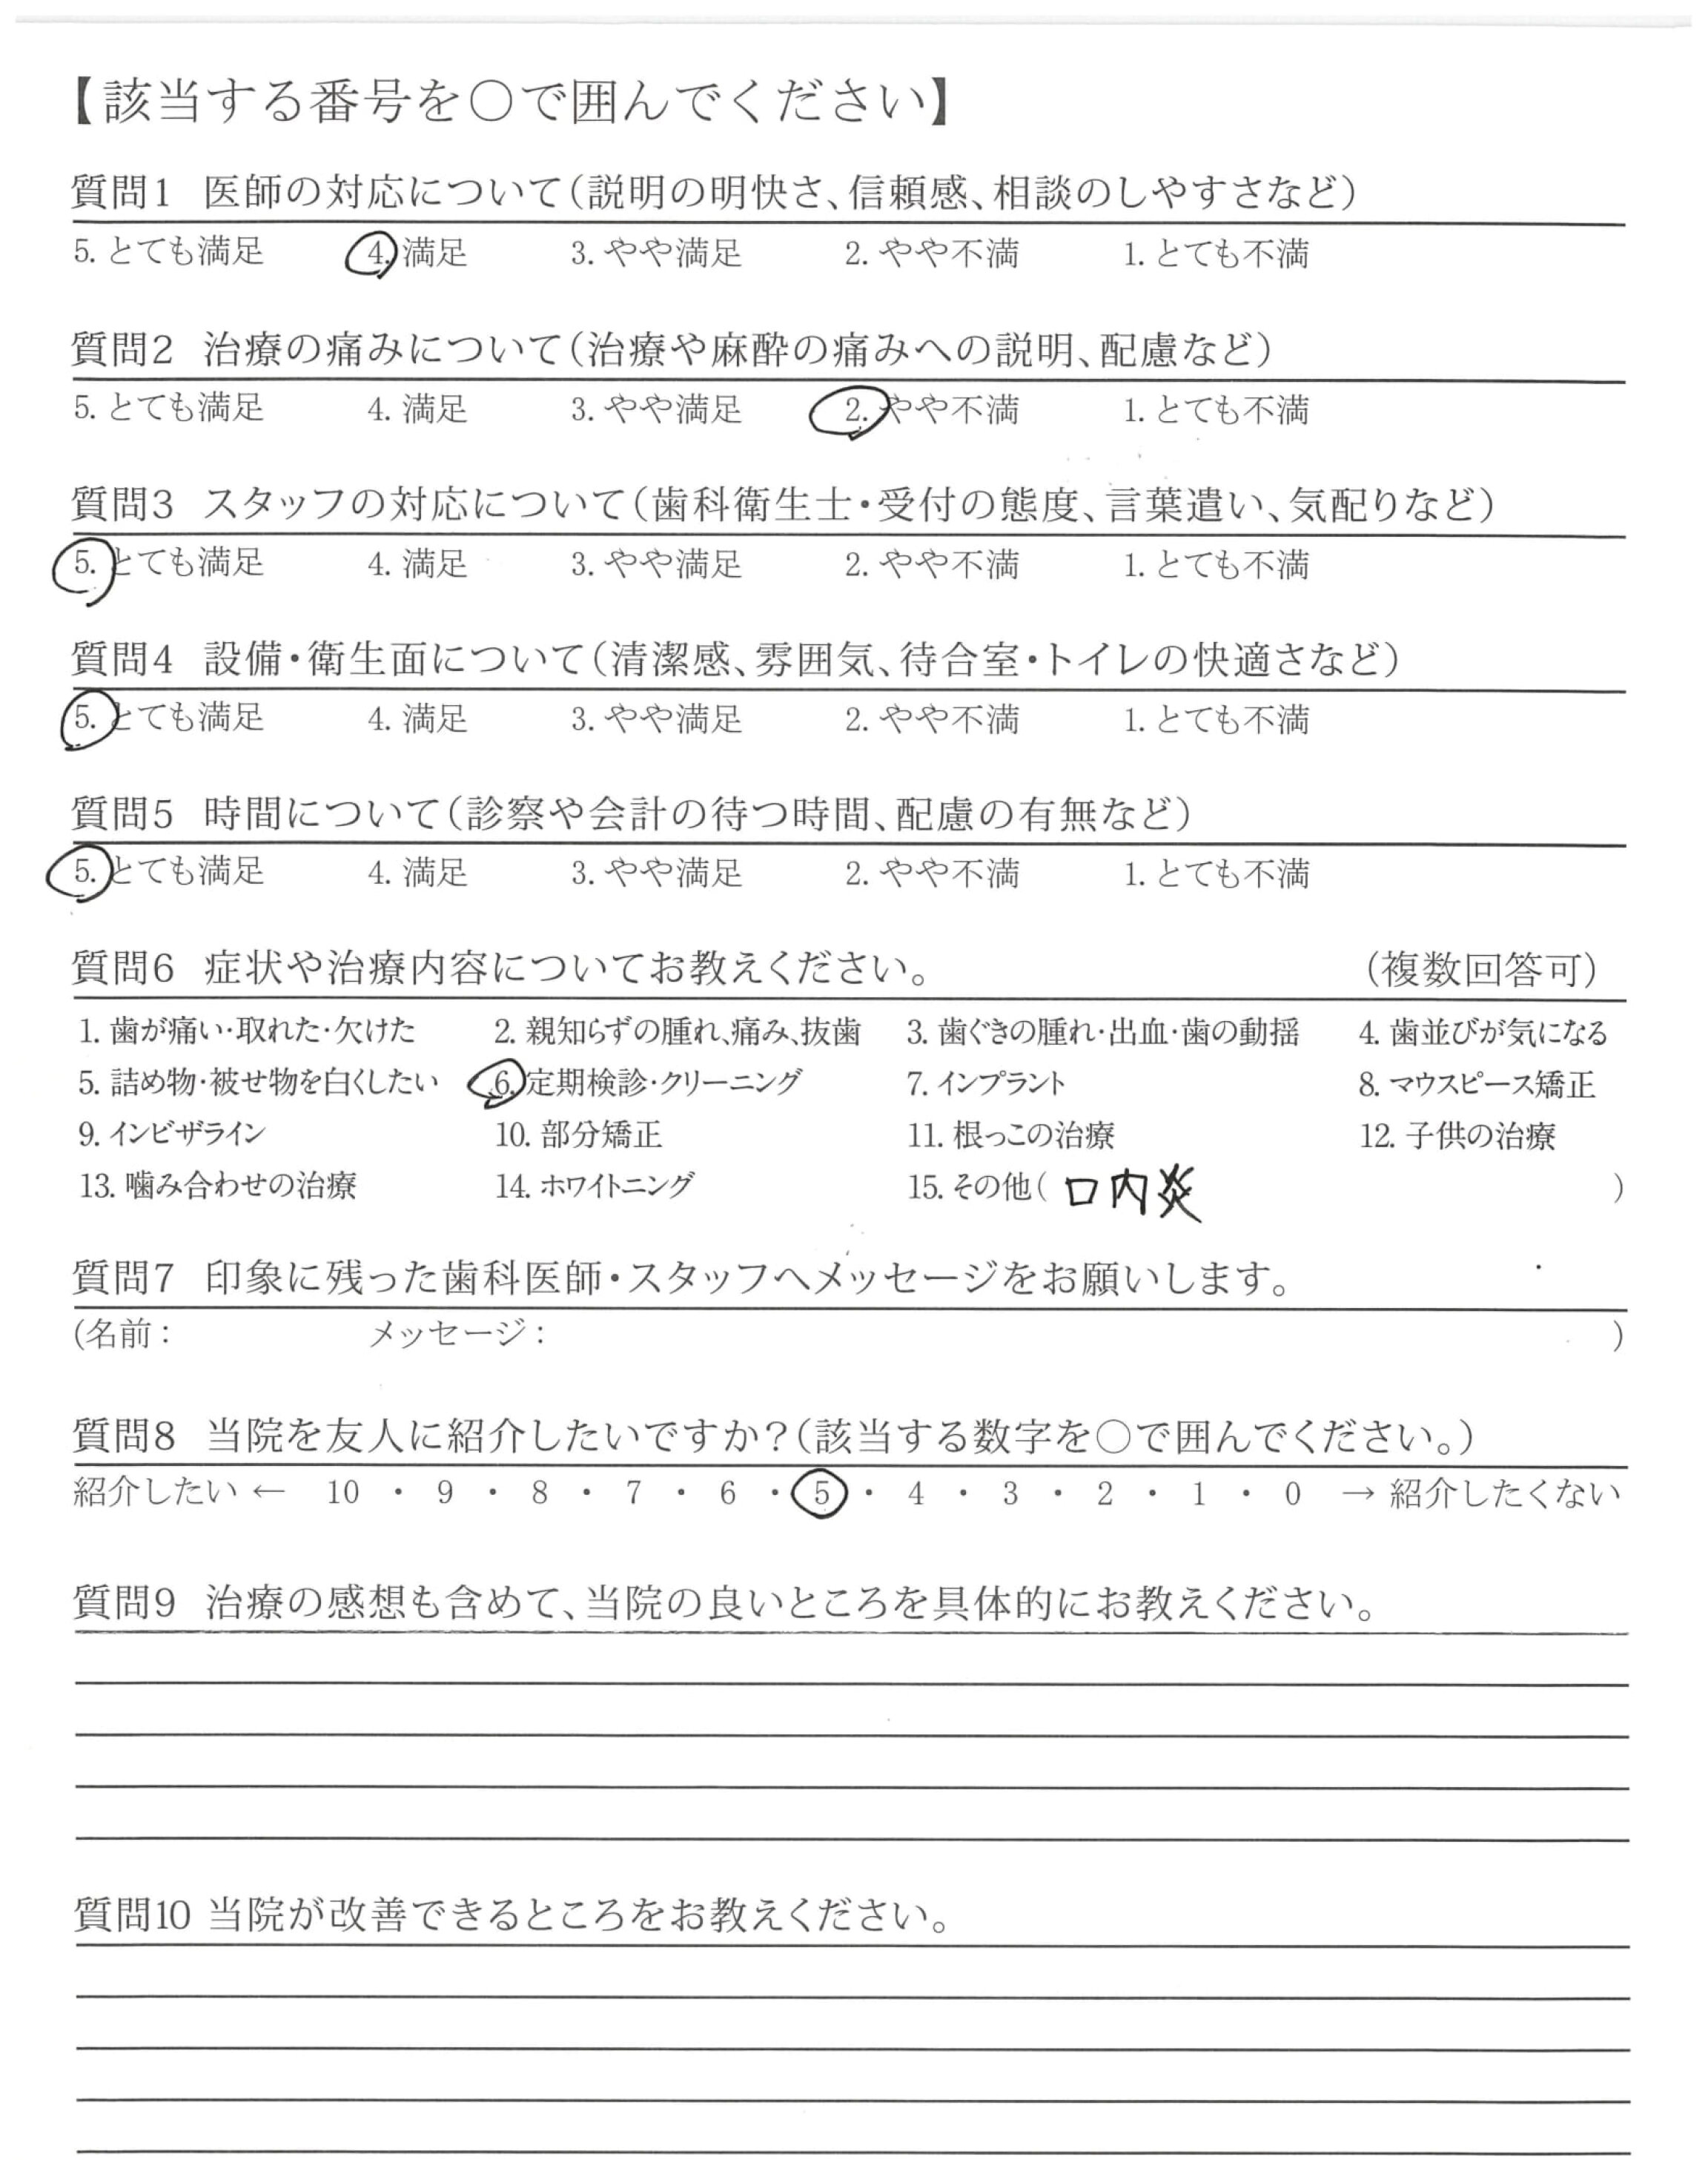 【該当する番号を○で囲んでください】
質問1 医師の対応について(説明の明快さ、信頼感、相談のしやすさなど)
5. とても満足 4. 満足 3. やや満足 2. やや不満 1. とても不満
質問2 治療の痛みについて(治療や麻酔の痛みへの説明、配慮など)
5. とても満足 4. 満足 3. やや満足 2. やや不満 1. とても不満
質問3 スタッフの対応について(歯科衛生士・受付の態度、言葉遣い、気配りなど)
5. とても満足 4. 満足 3. やや満足 2. やや不満 1. とても不満
質問4 設備・衛生面について(清潔感、雰囲気、待合室・トイレの快適さなど)
5. とても満足 4. 満足 3. やや満足 2. やや不満 1. とても不満
質問5 時間について(診察や会計の待つ時間、配慮の有無など)
5. とても満足 4. 満足 3. やや満足 2. やや不満 1. とても不満
質問6 症状や治療内容についてお教えください。 (複数回答可)
1. 歯が痛い・取れた・欠けた 2. 親知らずの腫れ、痛み、抜歯 3. 歯ぐきの腫れ・出血・歯の動揺 4. 歯並びが気になる
5. 詰め物・被せ物を白くしたい 6. 定期検診・クリーニング 7. インプラント 8. マウスピース矯正
9. インビザライン 10. 部分矯正 11. 根っこの治療 12. 子供の治療
13. 噛み合わせの治療 14. ホワイトニング 15. その他( 口内炎 )
質問7 印象に残った歯科医師・スタッフへメッセージをお願いします。
(名前: メッセージ: )
質問8 当院を友人に紹介したいですか?(該当する数字を○で囲んでください。)
紹介したい ← 10 ・ 9 ・ 8 ・ 7 ・ 6 ・ 5 ・ 4 ・ 3 ・ 2 ・ 1 ・ 0 → 紹介したくない
質問9 治療の感想も含めて、当院の良いところを具体的にお教えください。
質問10 当院が改善できるところをお教えください。